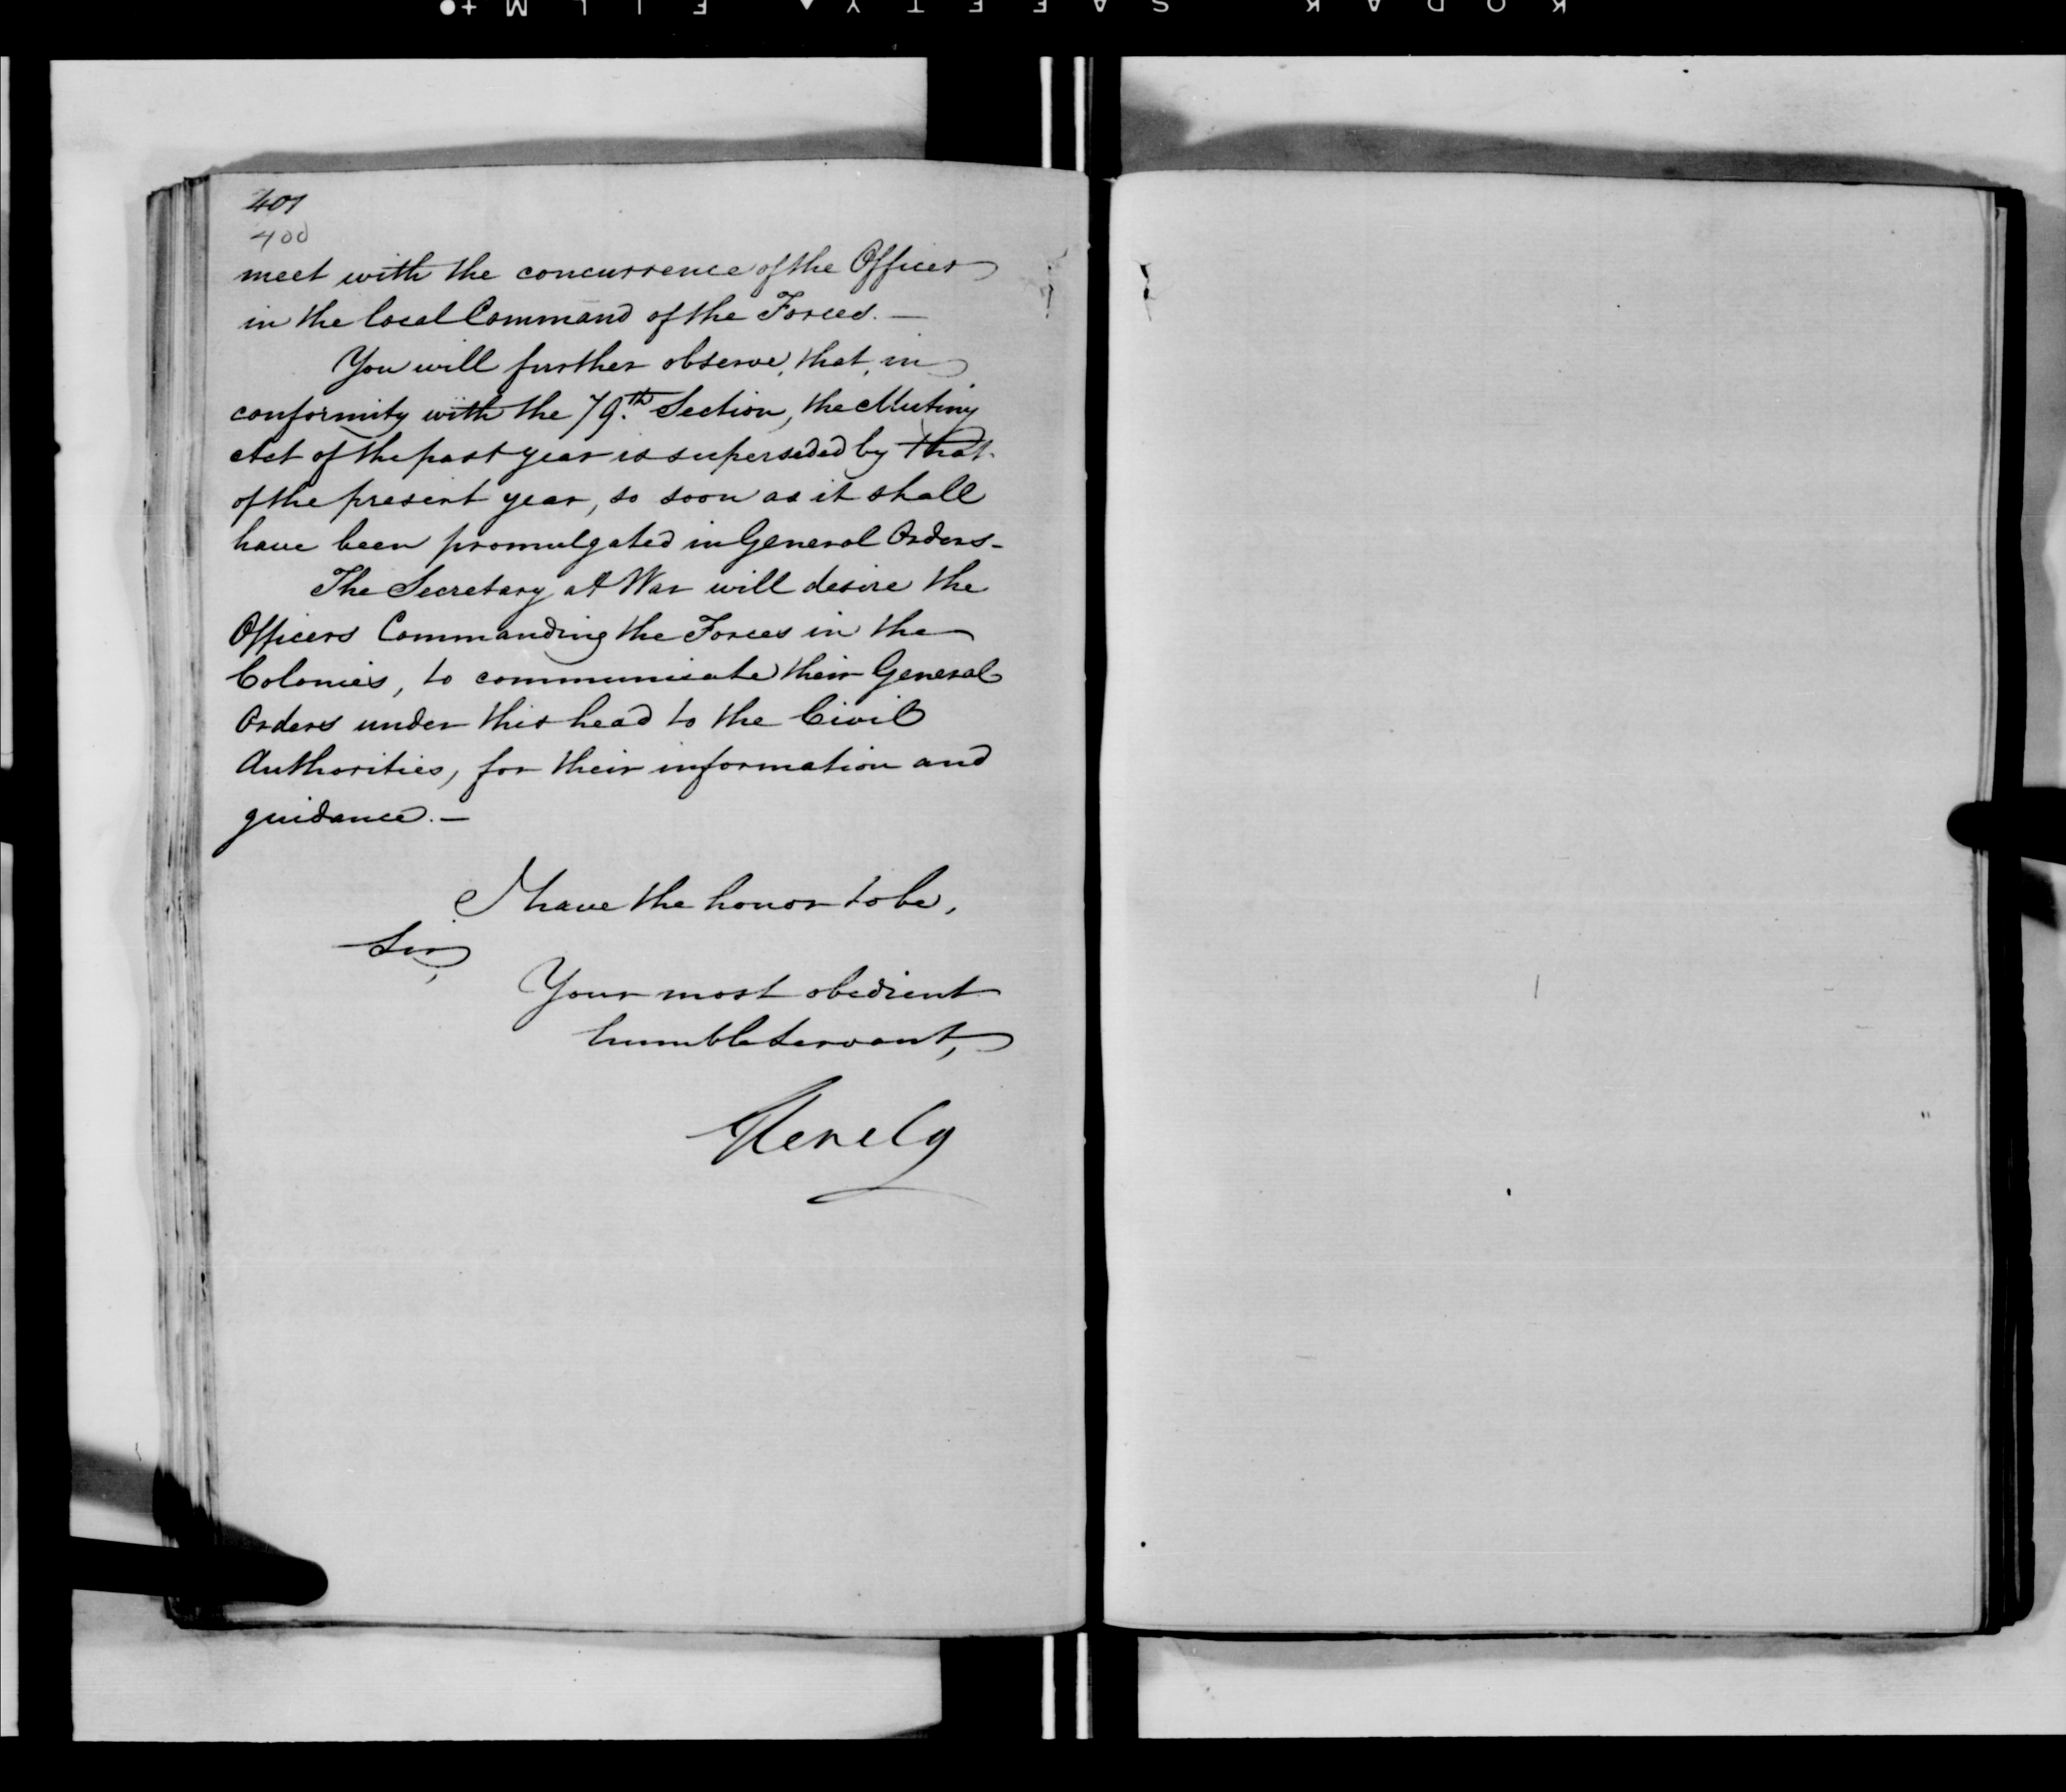 KODAK SAFETY ▲ FILM +●
401
400
meet with the concurrence of the Officer
in the local Command of the Forces. —
You will further observe, that, in
conformity with the 79.th Section, the Mutiny
Act of the past year is superseded by that
of the present year, so soon as it shall
have been promulgated in General Orders —
The Secretary at War will desire the
Officers Commanding the Forces in the
Colonies, to communicate their General
Orders under this head to the Civil
Authorities, for their information and
guidance. —
I have the honor to be,
Sir,
Your most obedient
humble servant,
Glenelg